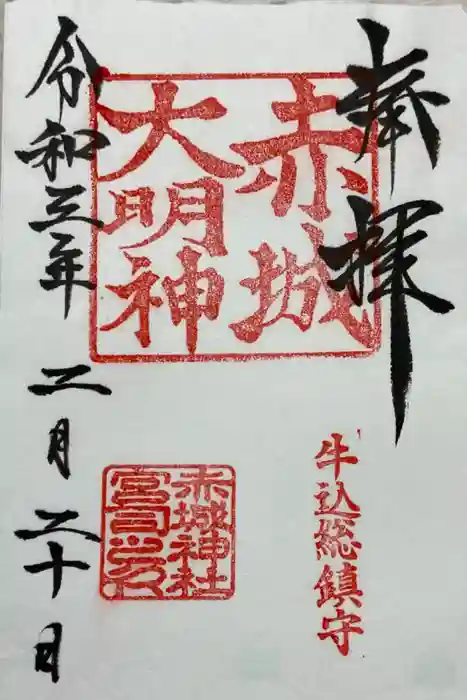 奉拝
赤城
大明神
牛込総鎮守
赤城神社
宮司之印
令和三年
二月
二十日